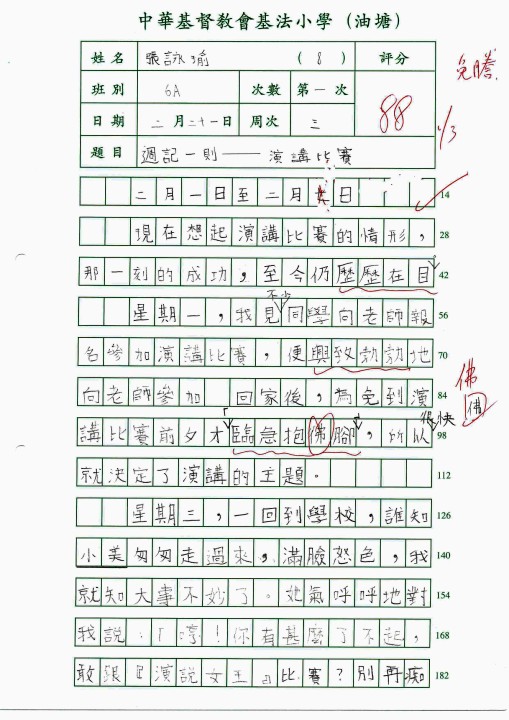 中華基督教會基法小學（油塘）
姓名 張詠瑜 （8） 評分
免謄
班別 6A 次數 第一次
88
1/3
日期 二月二十一日 周次 三
題目 週記一則——演講比賽
二月一日至二月 日 14
現在想起演講比賽的情形， 28
那一刻的成功，至今仍歷歷在目 42
不少
星期一，我見同學向老師報 56
名參加演講比賽，便興致勃勃地 70
向老師參加 回家後，為免到演 84
佛
佛
很快
講比賽前夕才「臨急抱佛腳」，所以 98
就決定了演講的主題。 112
星期三，一回到學校，誰知 126
小美匆匆走過來，滿臉怒色，我 140
就知大事不妙了。她氣呼呼地對 154
我說：「哼！你有甚麼了不起， 168
敢跟『演說女王』比賽？別再痴 182